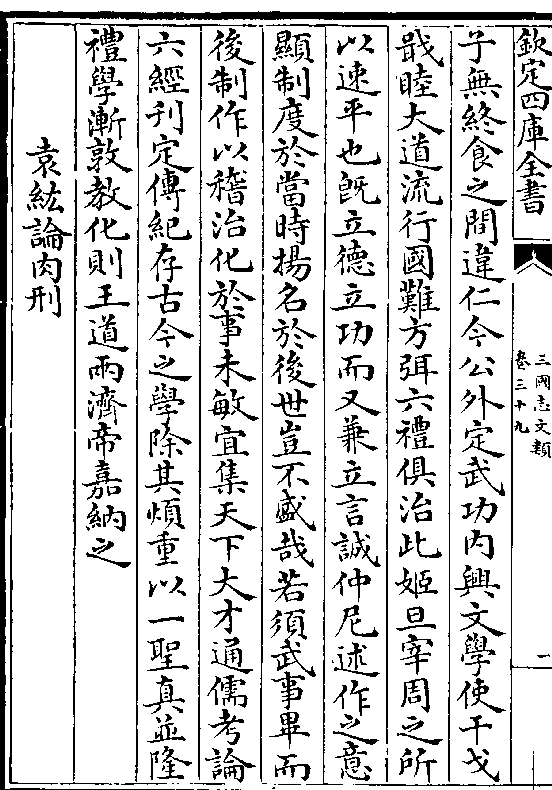 欽定四庫全書
三國志文類
卷三十九
一
子無終食之間違仁今公外定武功内興文學使干戈
戢睦大道流行國難方弭六禮俱治此姬旦宰周之所
以速平也旣立德立功而又兼立言誠仲尼述作之意
顯制度於當時揚名於後世豈不盛哉若須武事畢而
後制作以稽治化於事未敏宜集天下大才通儒考論
六經刊定傳紀存古今之學除其煩重以一聖真並隆
禮學漸敦教化則王道兩濟帝嘉納之
袁紘論肉刑